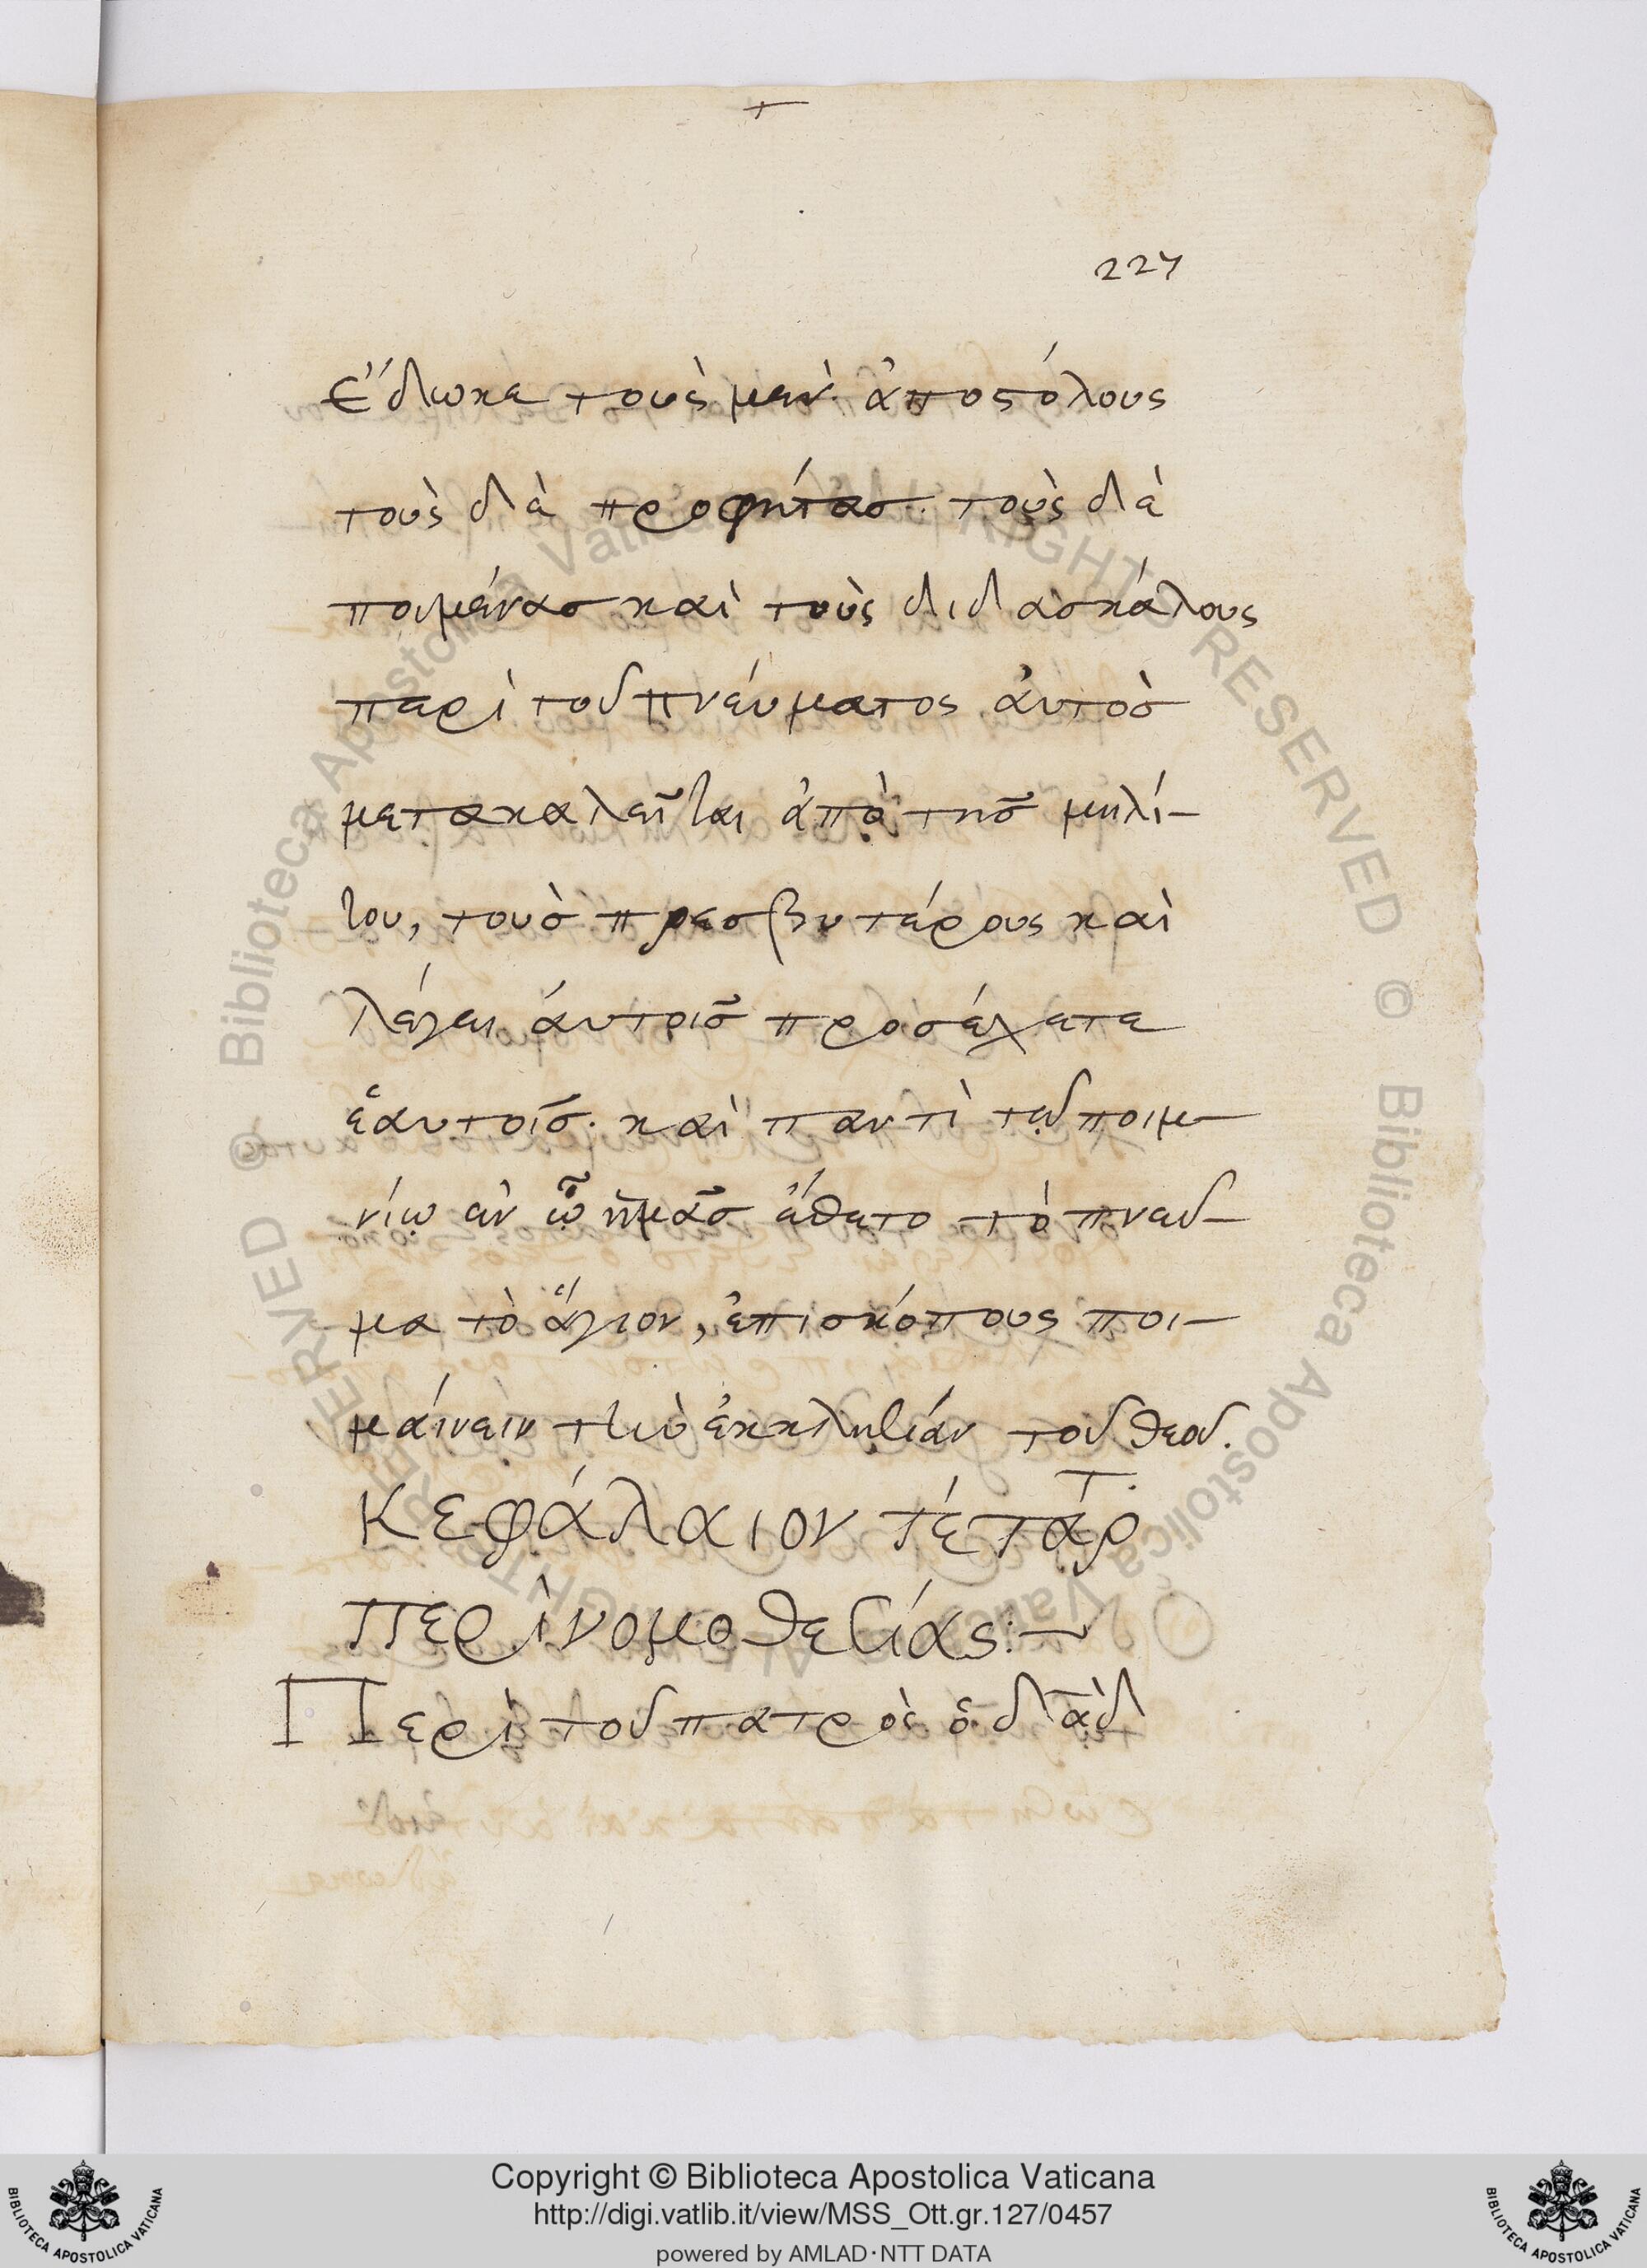 227
Ἔδωκε τοὺς μὲν ἀποστόλους
τοὺς δὲ προφήτασ. τοὺς δὲ
ποιμένασ καὶ τοὺς διδασκάλους
περὶ τοῦ πνέυματος ἀυτὸσ
μετακαλεῖται ἀπὸ τῆσ μηλί-
του, τοὺσ πρεσβυτέρους καὶ
λέγει ἀυτοῖσ προσέχετε
ἑαυτοῖσ. καὶ παντὶ τῷ ποιμ-
νίῳ ἐν ᾧ ἡμᾶσ ἔθετο τὸ πνεῦ-
μα τὸ ἅγιον, ἐπισκόπους ποι-
μάινειν τὴν ἐκκλησίαν τοῦ θεοῦ.
Κεφάλαιον τέταρτ.
περὶ νομοθεσίας:~
Περὶ τοῦ πατρὸς ὁ δαδ
Copyright © Biblioteca Apostolica Vaticana
http://digi.vatlib.it/view/MSS_Ott.gr.127/0457
powered by AMLAD·NTT DATA
BIBLIOTECA APOSTOLICA VATICANA
BIBLIOTECA APOSTOLICA VATICANA